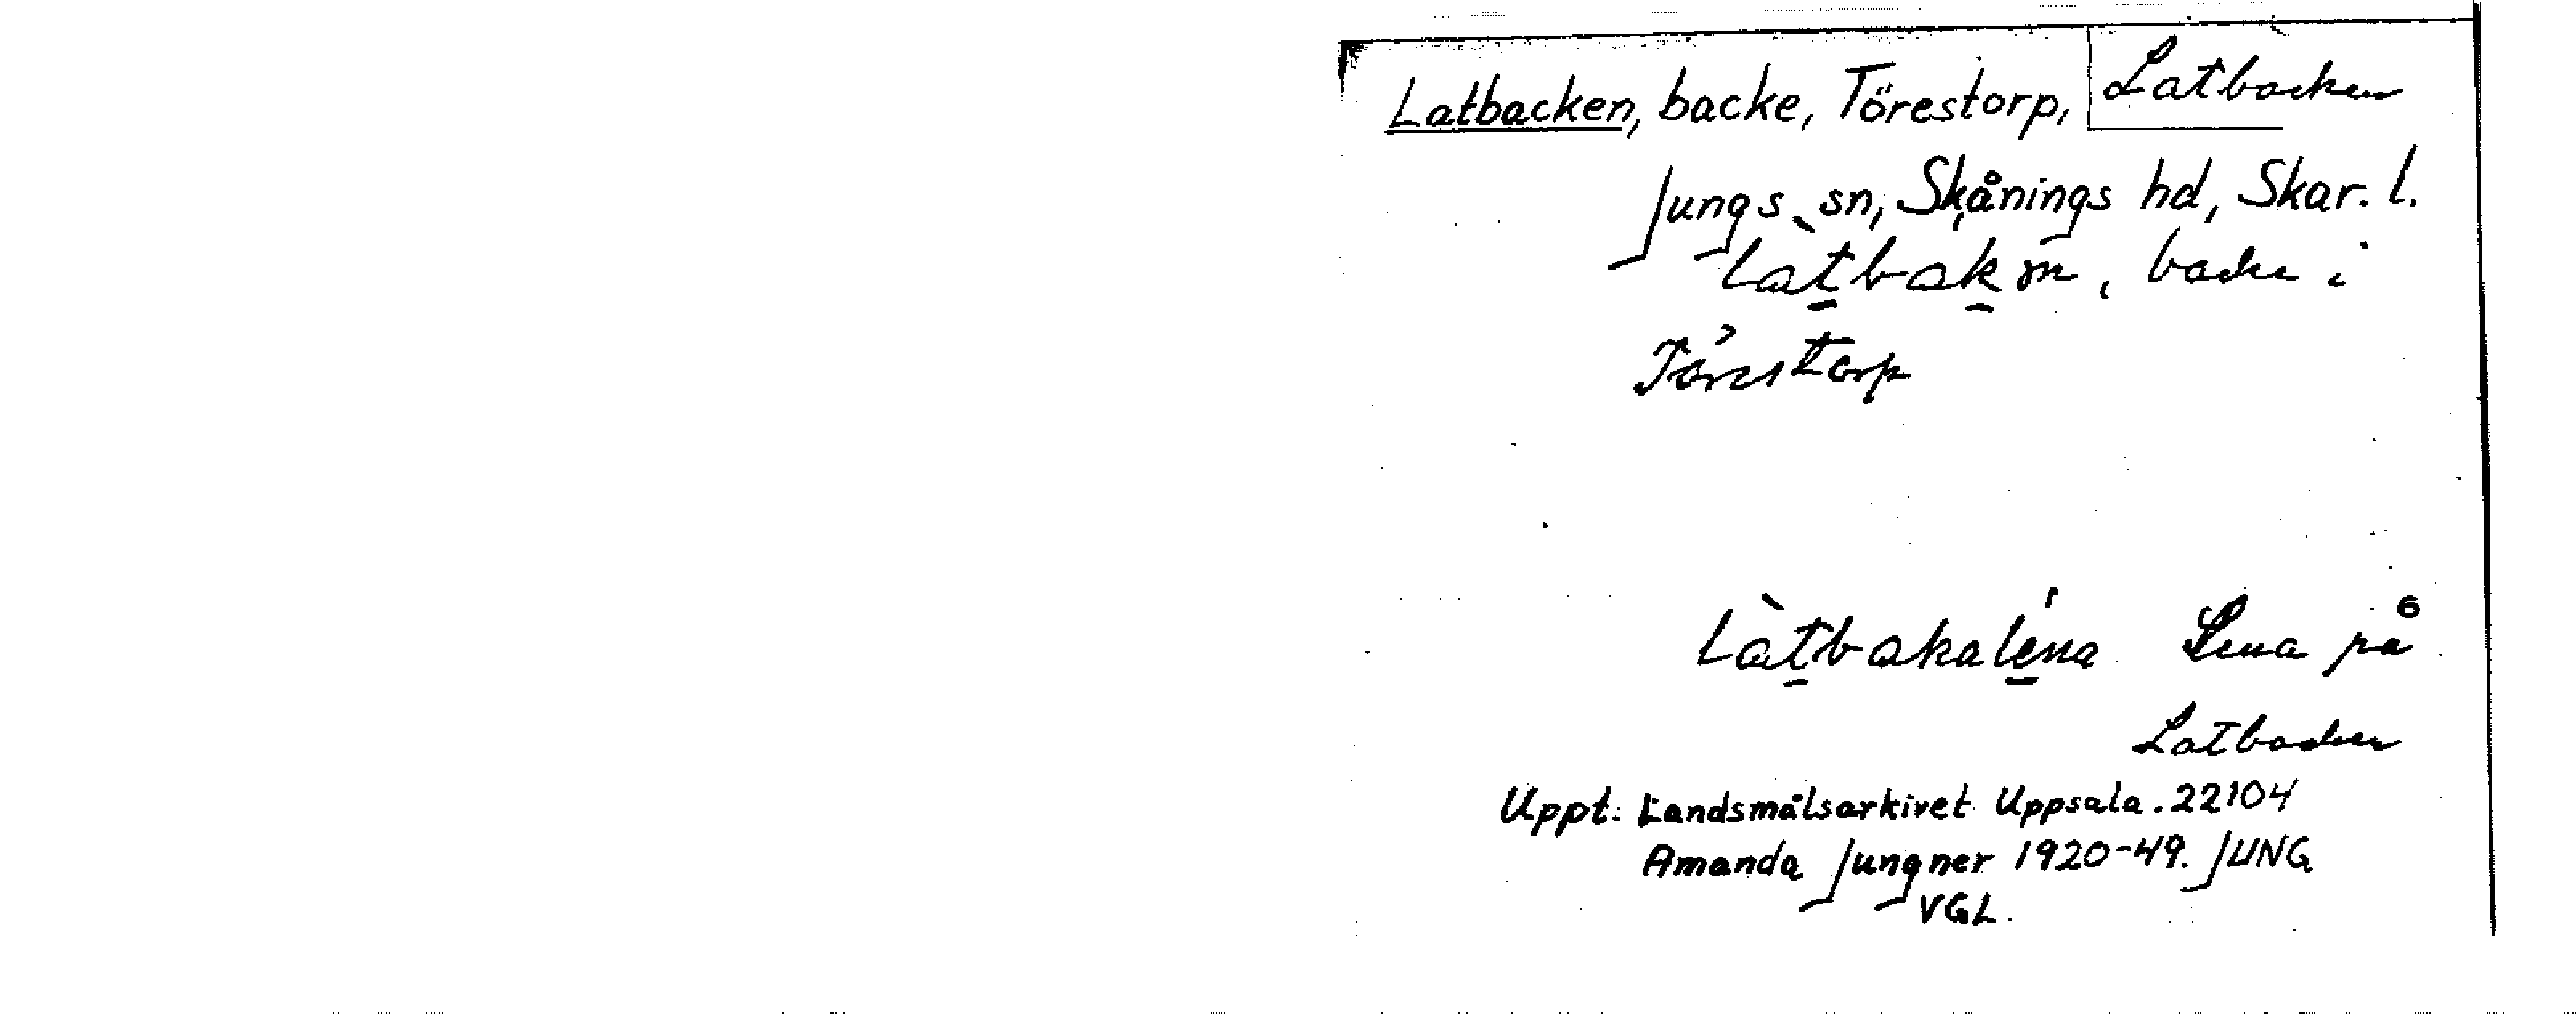 Latbacken, backe, Törestorp, Latbacken
Jungs sn, Skånings hd, Skar. l.
Làtbakm̥, backe i
Törestorp
Làtbakaléna Lena på
Latbacken
Uppt: Landsmålsarkivet Uppsala. 22104
Amanda Jungner 1920-49. JUNG
VGL.